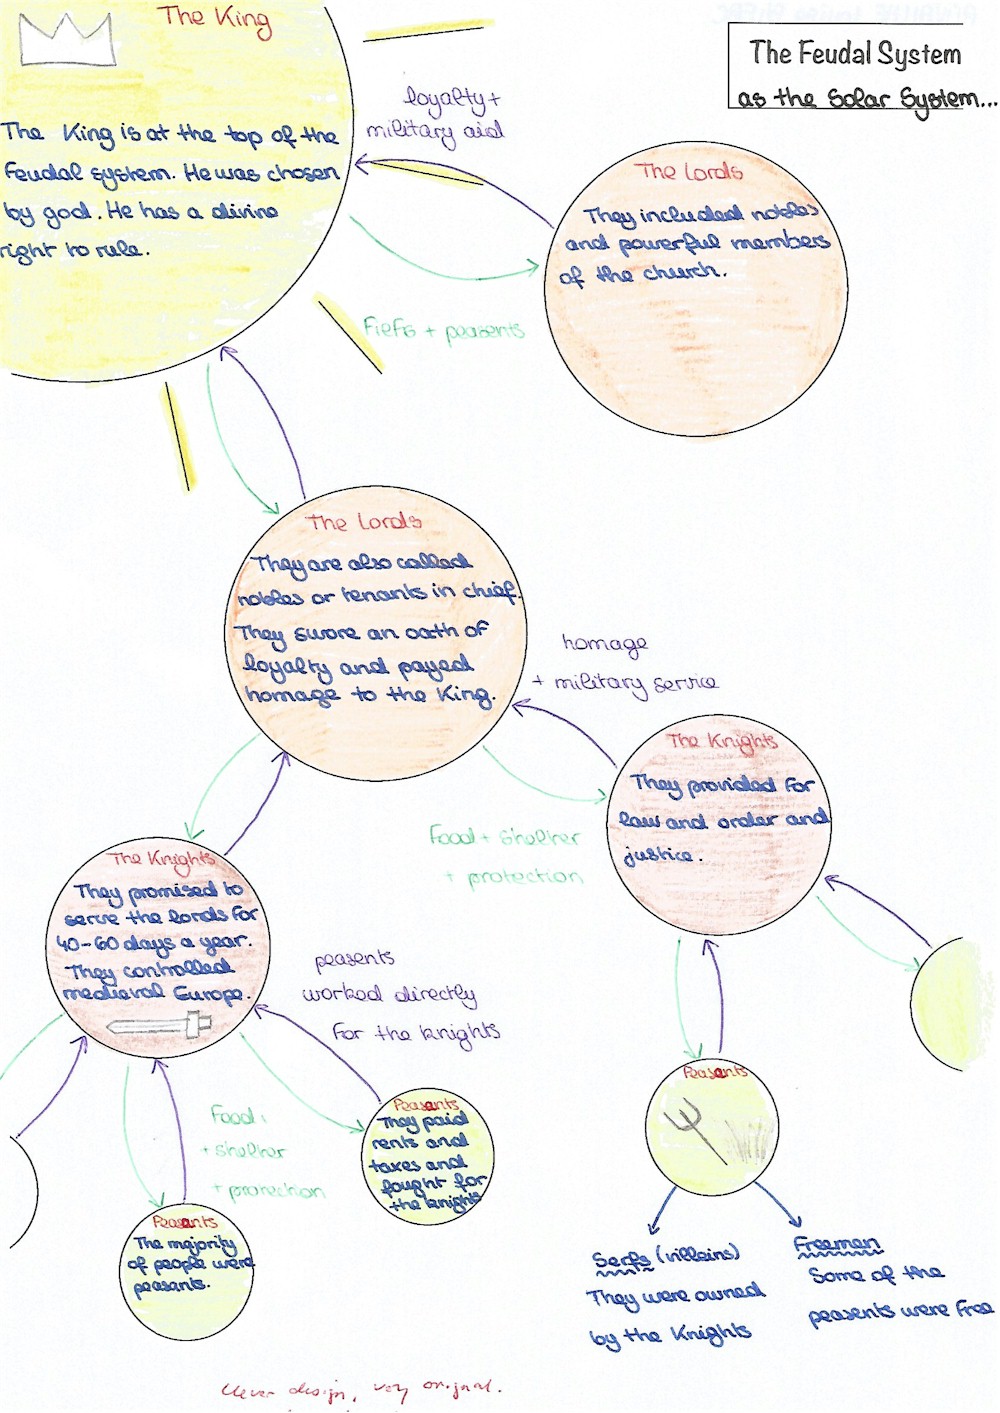 The King
The King is at the top of the
Feudal system. He was chosen
by god. He has a divine
right to rule.
The Feudal System
as the Solar System...
loyalty +
military aid
Fiefs + peasents
The Lords
They included nobles
and powerful members
of the church.
The Lords
They are also called
nobles or tenants in chief.
They swore an oath of
loyalty and payed
homage to the King.
homage
+ military service
Food + shelter
+ protection
The Knights
They provided for
law and order and
justice.
The Knights
They promised to
serve the lords for
40-60 days a year.
They controlled
medieval Europe.
peasents
worked directly
for the knights
Food
+ shelter
+ protection
Peasants
They paid
rents and
taxes and
fought for
the knights
Peasants
The majority
of people were
peasants.
Peasants
Serfs (villeins)
They were owned
by the Knights
Freeman
Some of the
peasents were free
clever design, very original.